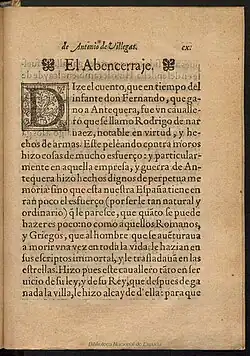 de Antonio de Villegas. cx:
El Abencerraje.
DIze el cuento, que en tiempo del
infante don Fernando, que ga-
no a Antequera, fue vn caualle-
ro q̃ se llamo Rodrigo de nar
uaez, notable en virtud, y he-
chos de armas. Este peleando contra mo-
ros hizo cosas de mucho esfuerço: y particular-
mente en aquella empresa, y guerra de An-
tequera hizo hechos dignos de perpetua me
moria: sino que esta nuestra España tiene en
tan poco el esfuerço (por serle tan natural y
ordinario) q̃ le parece, que quãto se puede
hazer es poco: no como aquellos Romanos,
y Griegos, que al hombre que se auẽturaua
a morir vna vez en toda la vida le hazian en
sus escriptos immortal, y le trasladauã en las
estrellas. Hizo pues este cauallero tãto en ser
uicio de su ley, y de su Rey, que despues de ga
nada la villa, le hizo alcayde d'ella: para que
Biblioteca Nacional de España